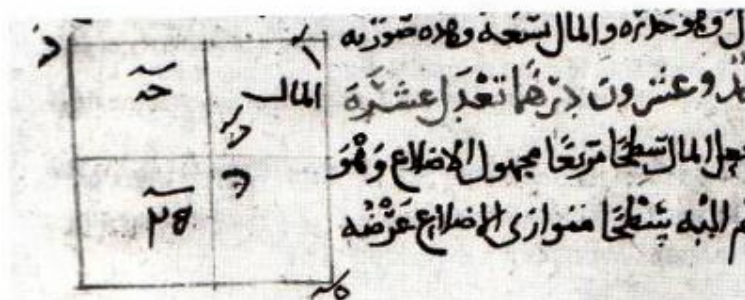 وهو جذره والمال تسعة وهذه صورته
وعشرون درهما تعدل عشرة
المال سطحا مربعا مجهول الاضلاع وهو
اليه سطحا متوازي الاضلاع عرضه
المال